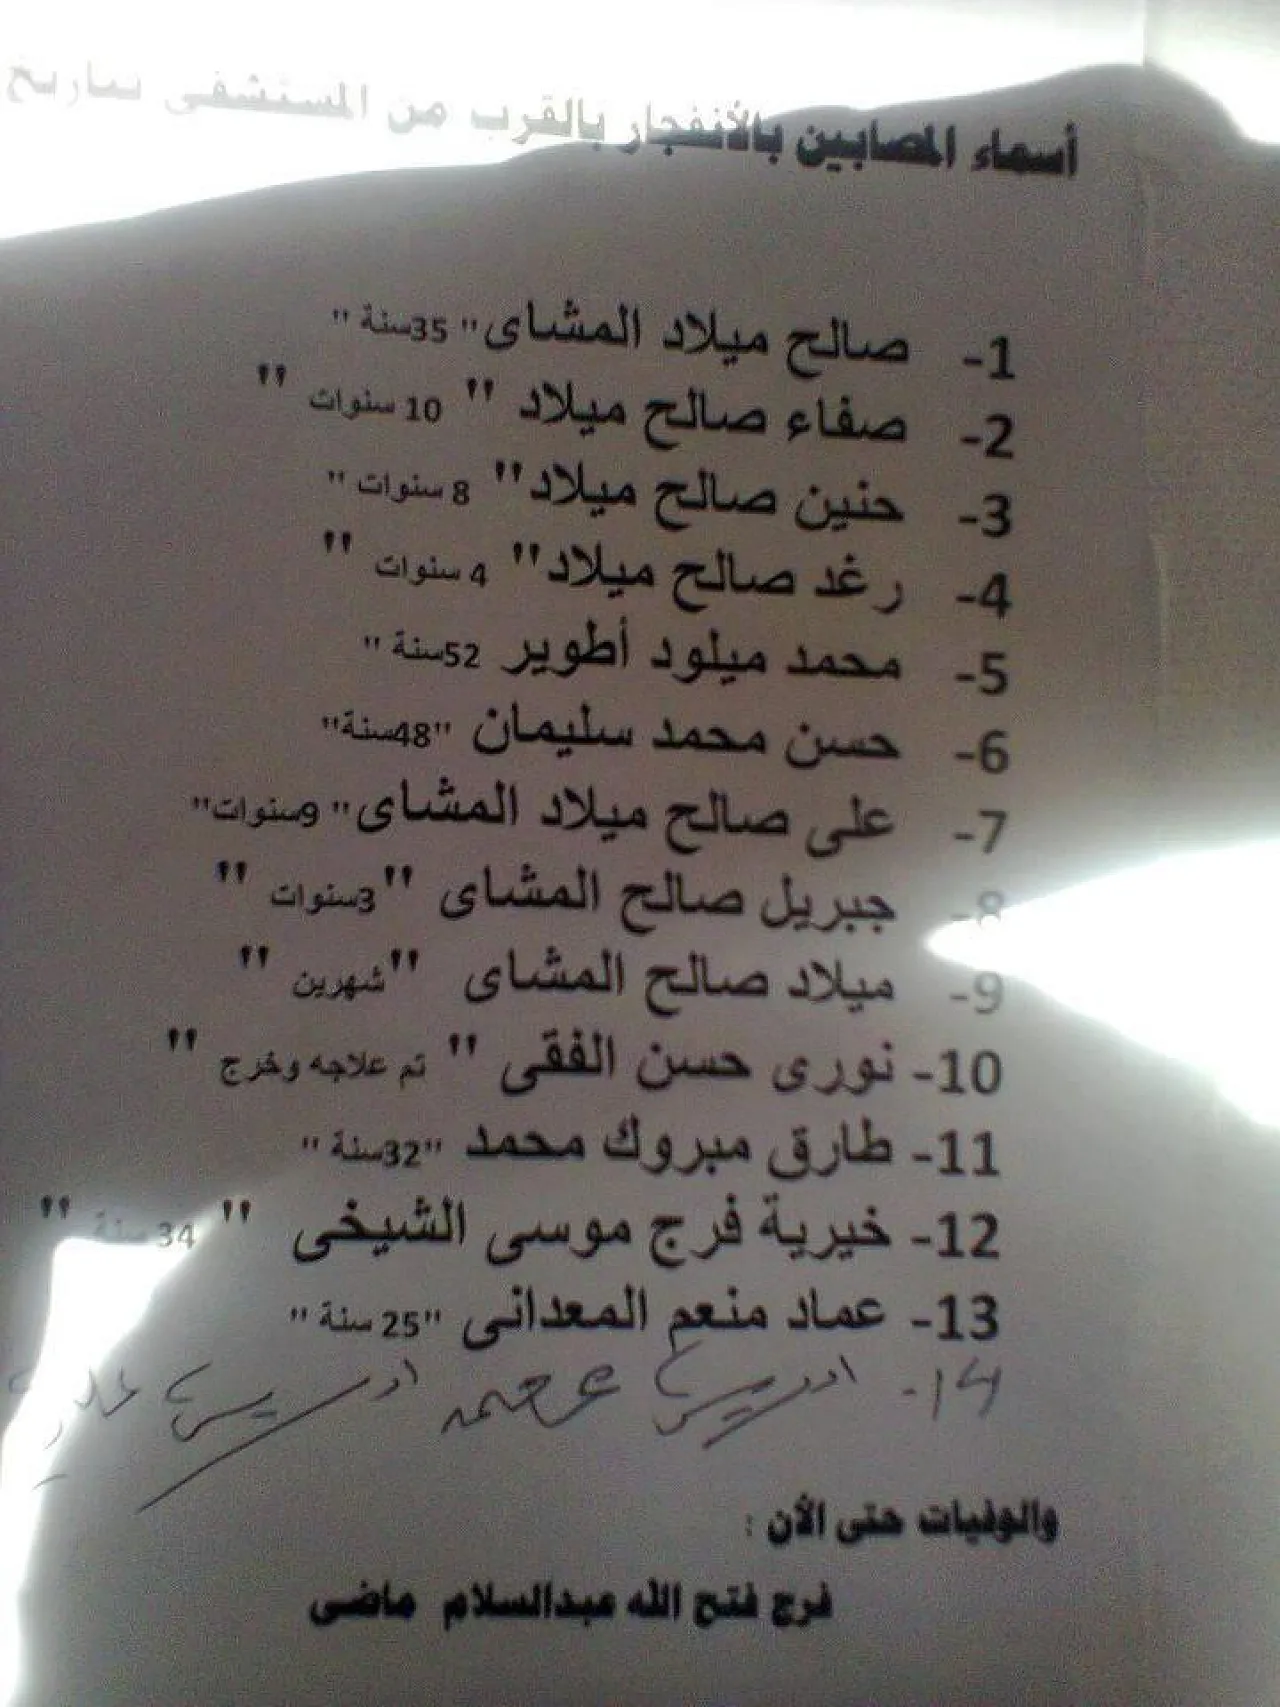 أسماء المصابين بالأنفجار بالقرب من المستشفى بتاريخ
1- صالح ميلاد المشاى" 35سنة "
2- صفاء صالح ميلاد " 10 سنوات "
3- حنين صالح ميلاد" 8 سنوات "
4- رغد صالح ميلاد" 4 سنوات "
5- محمد ميلود أطوير 52سنة "
6- حسن محمد سليمان "48سنة"
7- على صالح ميلاد المشاى" 9سنوات"
8- جبريل صالح المشاى "3سنوات "
9- ميلاد صالح المشاى "شهرين "
10- نورى حسن الفقى " تم علاجه وخرج "
11- طارق مبروك محمد "32سنة "
12- خيرية فرج موسى الشيخى " 34 سنة "
13- عماد منعم المعدانى "25 سنة "
14- ادريس محمد ادريس
والوفيات حتى الأن :
فرج فتح الله عبدالسلام ماضى